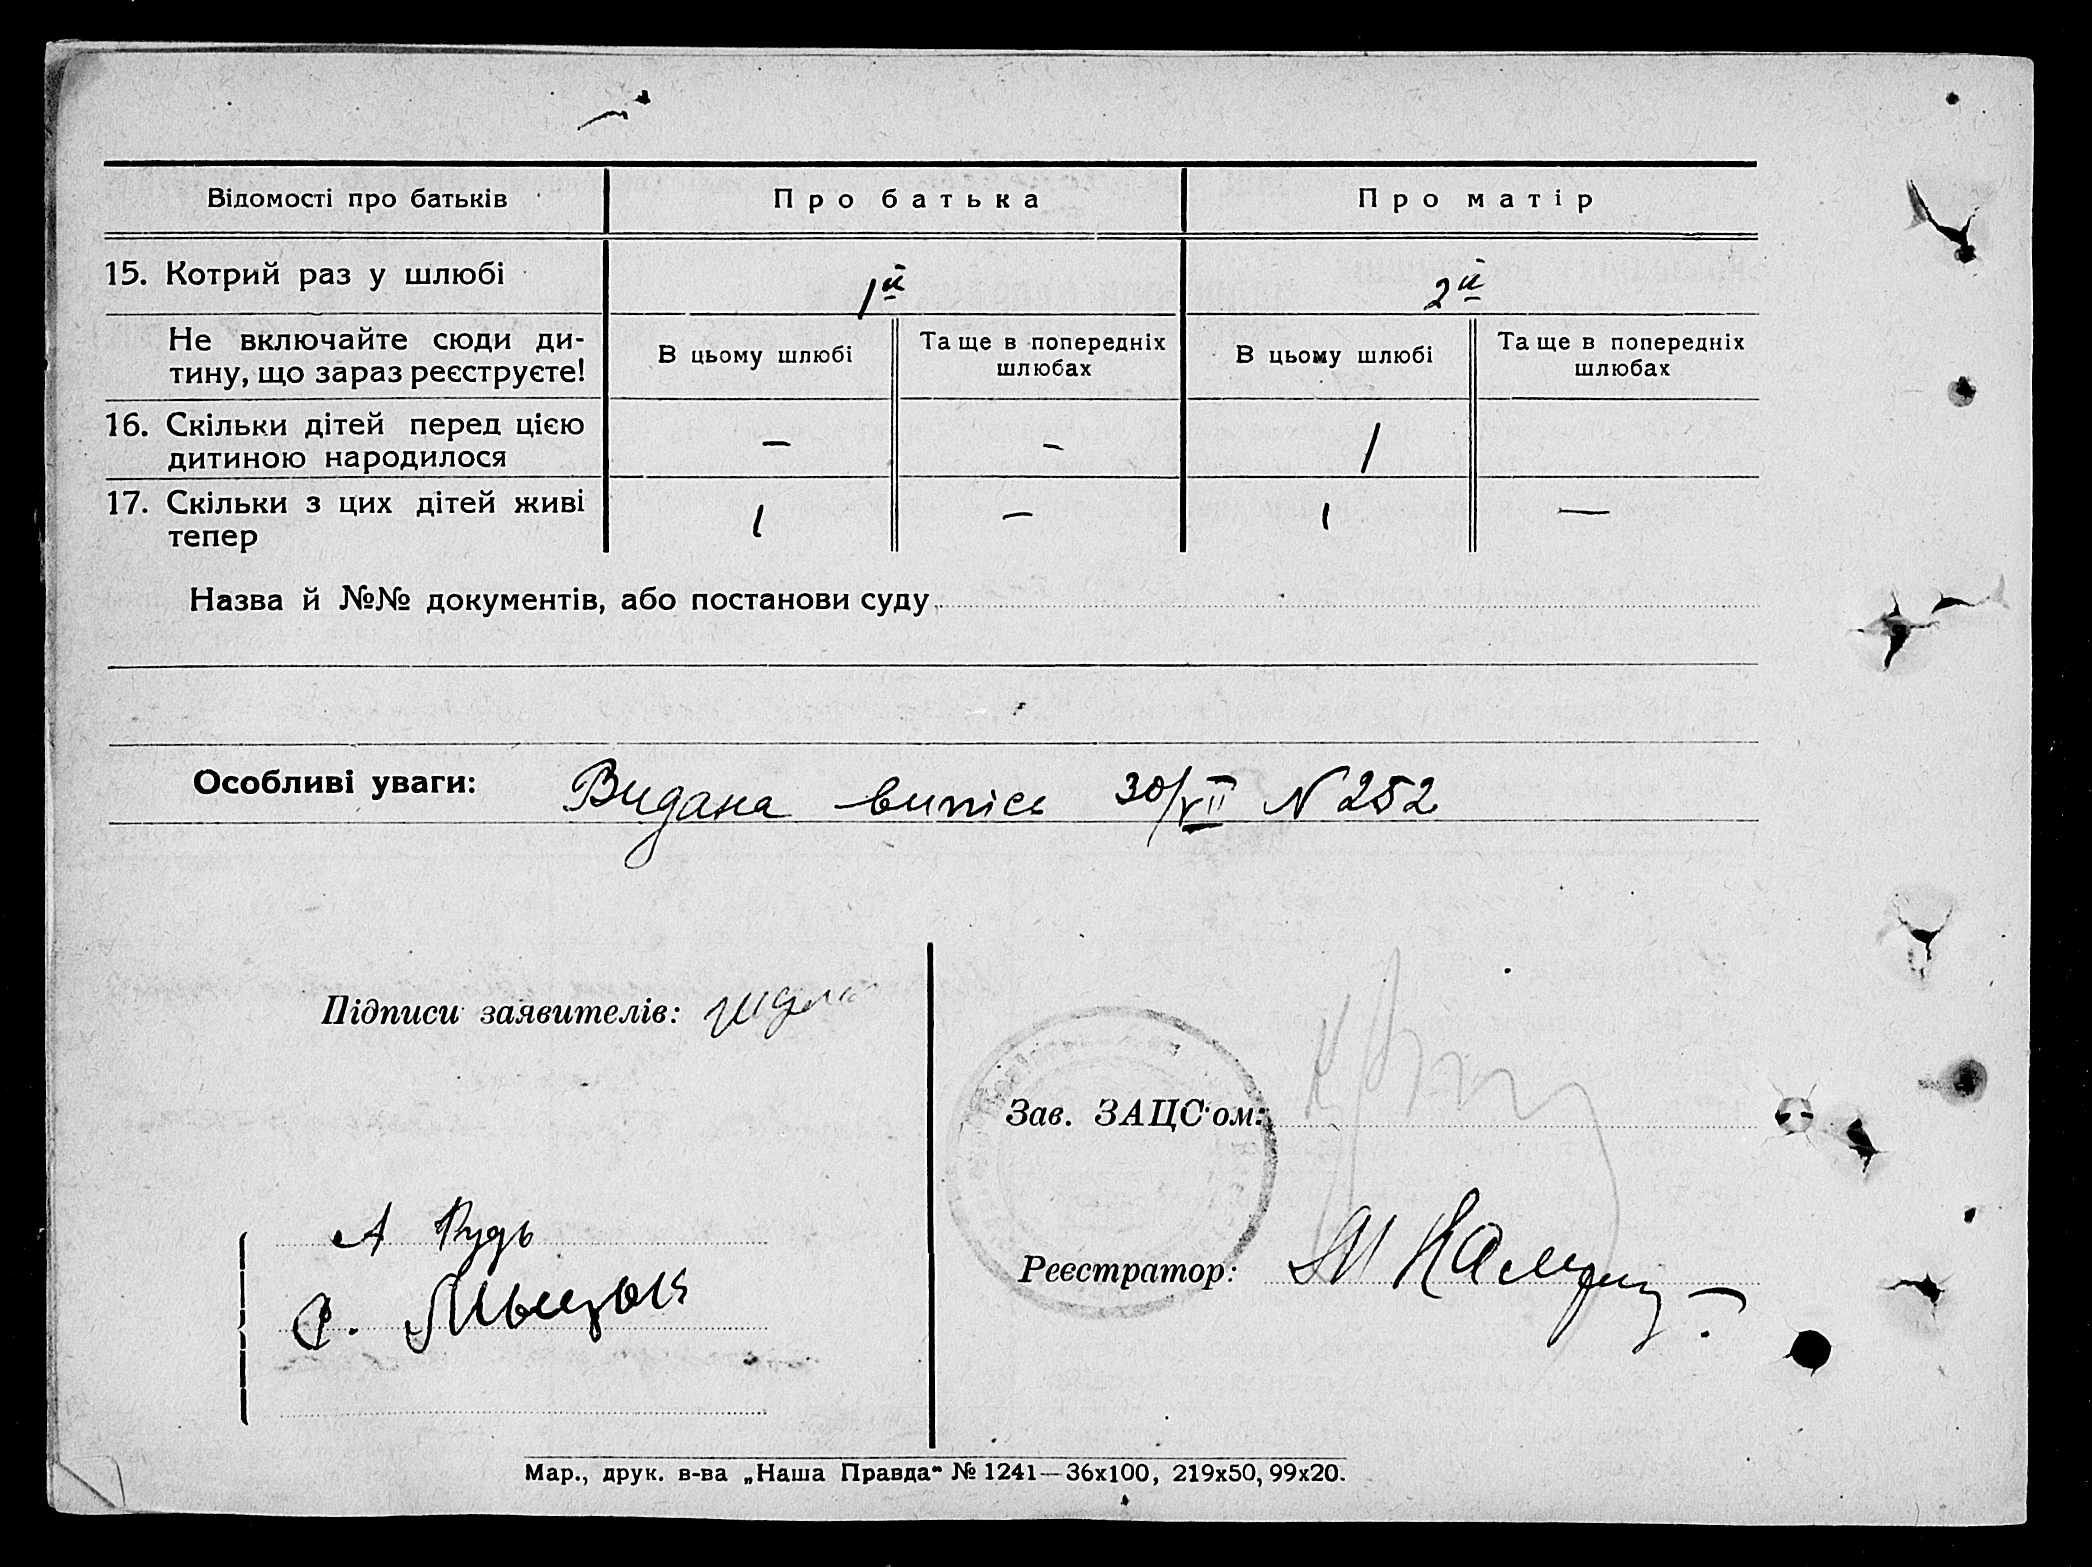 Відомості про батьків Про батька Про матір
15. Котрий раз у шлюбі 1й 2й
Не включайте сюди ди-
тину, що зараз реєструєте!
В цьому шлюбі
Та ще в попередніх
шлюбах
В цьому шлюбі
Та ще в попередніх
шлюбах
16. Скільки дітей перед цією
дитиною народилося
– - 1
17. Скільки з цих дітей живі
тепер
1 – 1 —
Назва й №№ документів, або постанови суду
Особливі уваги: Видана випись 30/VII N 252
Підписи заявителів:
Зав. ЗАЦС'ом:
А Рудь
Реєстратор:
Мар., друк. в-ва „Наша Правда“ № 1241—36х100, 219х50, 99х20.